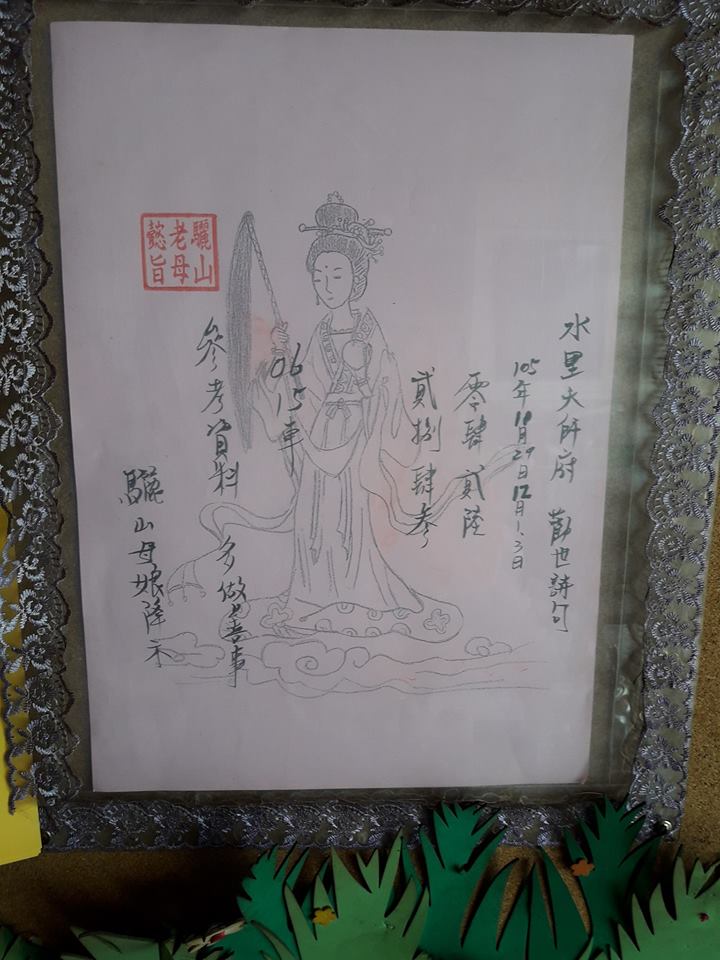 水里天師府 勸世詩句
105年11月29日12月1.3日
零肆 貳陸
貳捌 肆參
06 15車
參考資料 多做善事
驪山母娘降示
驪山
老母
懿旨